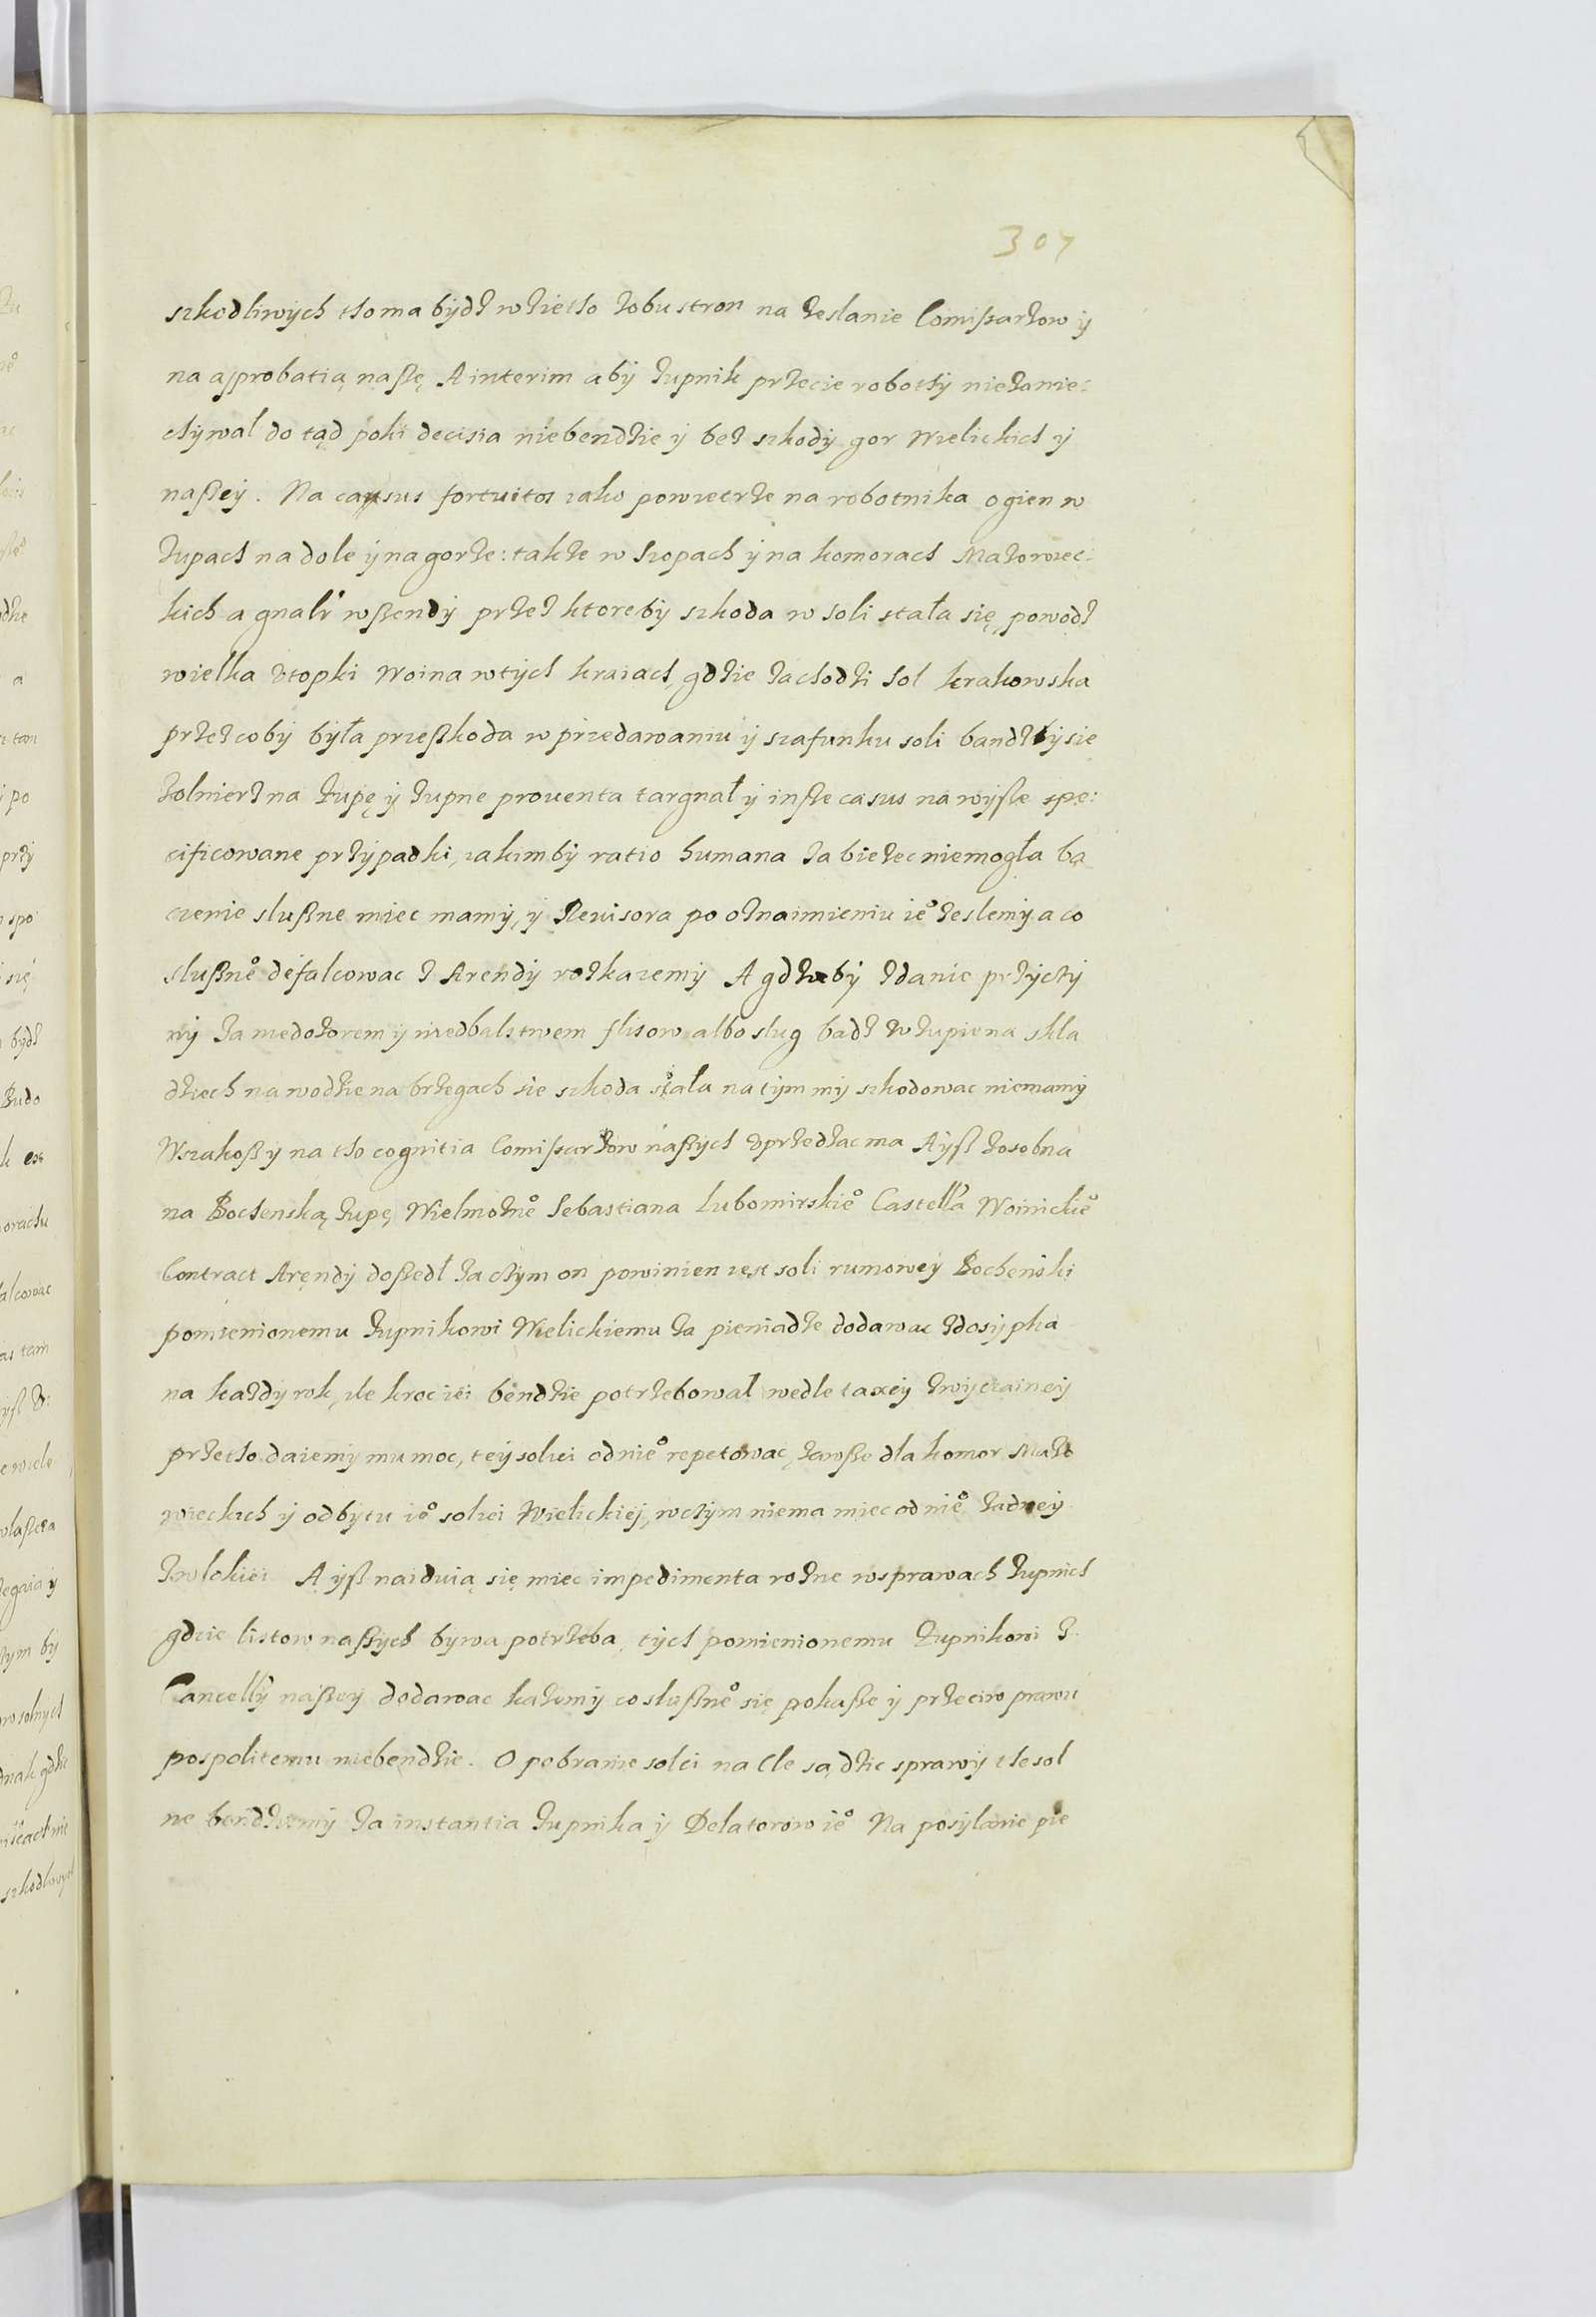 307
szkodliwych tho ma bydz wzietho zobu stron na zeslanie Comißarzow ÿ
na approbatią naßę A interim abÿ zupnik przecie robothÿ niezanie:
chÿwal do tąd poki decisia niebendzie ÿ bez szkodÿ gor Wielickich ÿ
naßeÿ. Na casus fortuitos iako powietrze na robotnika ogien w
zupach na dole ÿ na gorze: takze w szopach ÿ na komorach Mazowiec:
kich a gnalr wßendÿ przez ktorebÿ szkoda w soli stała się, powodz
wielka ztopki Woina wtÿch kraiach, gdzie zachodzi Sol krakowska
przez cobÿ bÿła przeßkoda w przedawaniu ÿ szafunku soli bandz bÿ sie
zolnierz na zupę ÿ zupne prouenta targnał ÿ inße casus na wÿße spe:
cificowane przÿpadki, iakimbÿ ratio humana zabiezec niemogła ba
czenie slußne miec mamÿ, ÿ Reuisora po oznaimieniu ie° zeslemÿ a co
slußne° defalcowac z Arendÿ rozkazemÿ A gdzie bÿ zdanie przÿczÿ
nÿ za niedozorem ÿ niedbalstwem flisow albo slug badz w zupie na skla
dziech na wodzie na brzegach sie szkoda stała na tÿm mÿ szkodowac niemamÿ
Wszakoß ÿ na tho cognitia Comißarzow naßÿch vprzedzac ma Aÿß zosobna
na Bochenską zupę Wielmozne° Sebastiana Lubomirskie° Castella Woinickie°
Contract Arendÿ doßedł za czÿm on powinien iest soli rumoweÿ Bochenski
pomienionemu zupnikowi Wielickiemu za pieniadze dodawac zdosÿpka
na kazdÿ rok, ile kroc iei bendzie potrzebowal wedle taxeÿ zwÿczaineÿ
przetho daiemÿ mu moc, teÿ solici od nie° repetowac, zawße dla komor Mazo
wieckich ÿ odbÿtu ie° solici Wielickieÿ, wczÿm niema miec od nie° zadneÿ
zwlokiei A ÿß naiduią się miec impedimenta rozne w sprawach zupnich
gdzie listow naßÿch bÿwa potrzeba, tÿch pomienionemu Zupnikowi z
Cancellÿ naßeÿ dodawac kazemÿ co slußne° się pokaße ÿ przeciw prawu
pospolitemu niebendzie. O pobranie solci na Cle sądzic sprawÿ the sol
ne bendziemÿ za instantia zupnika ÿ Delatorow ie° Na posÿlanie pie